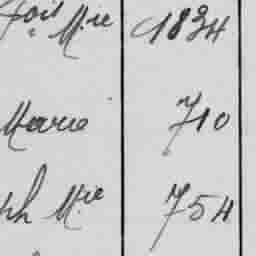 fois M.ie 1834
Marie 710
ph M.ie 754